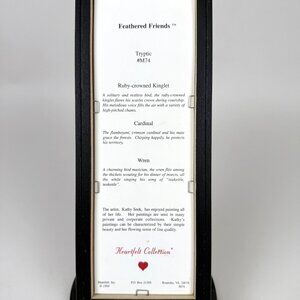 Feathered Friends ™
Tryptic
#M74
Ruby-crowned Kinglet
A solitary and restless bird, the ruby-crowned
kinglet flares his scarlet crown during courtship.
His melodious voice fills the air with a variety of
high-pitched chants.
Cardinal
The flamboyant, crimson cardinal and his mate
grace the forests. Chirping happily, he protects
his territory.
Wren
A charming bird musician, the wren flits among
the thickets scouting for his dinner of insects, all
the while singing his song of "teakettle,
teakettle".
The artist, Kathy Seek, has enjoyed painting all
of her life. Her paintings are seen in many
private and corporate collections. Kathy's
paintings can be characterized by their simple
beauty and her flowing sense of fine quality.
Heartfelt Collection
Heartfelt, Inc. PO Box 21395 Roanoke, VA 24018
© 1994 M74